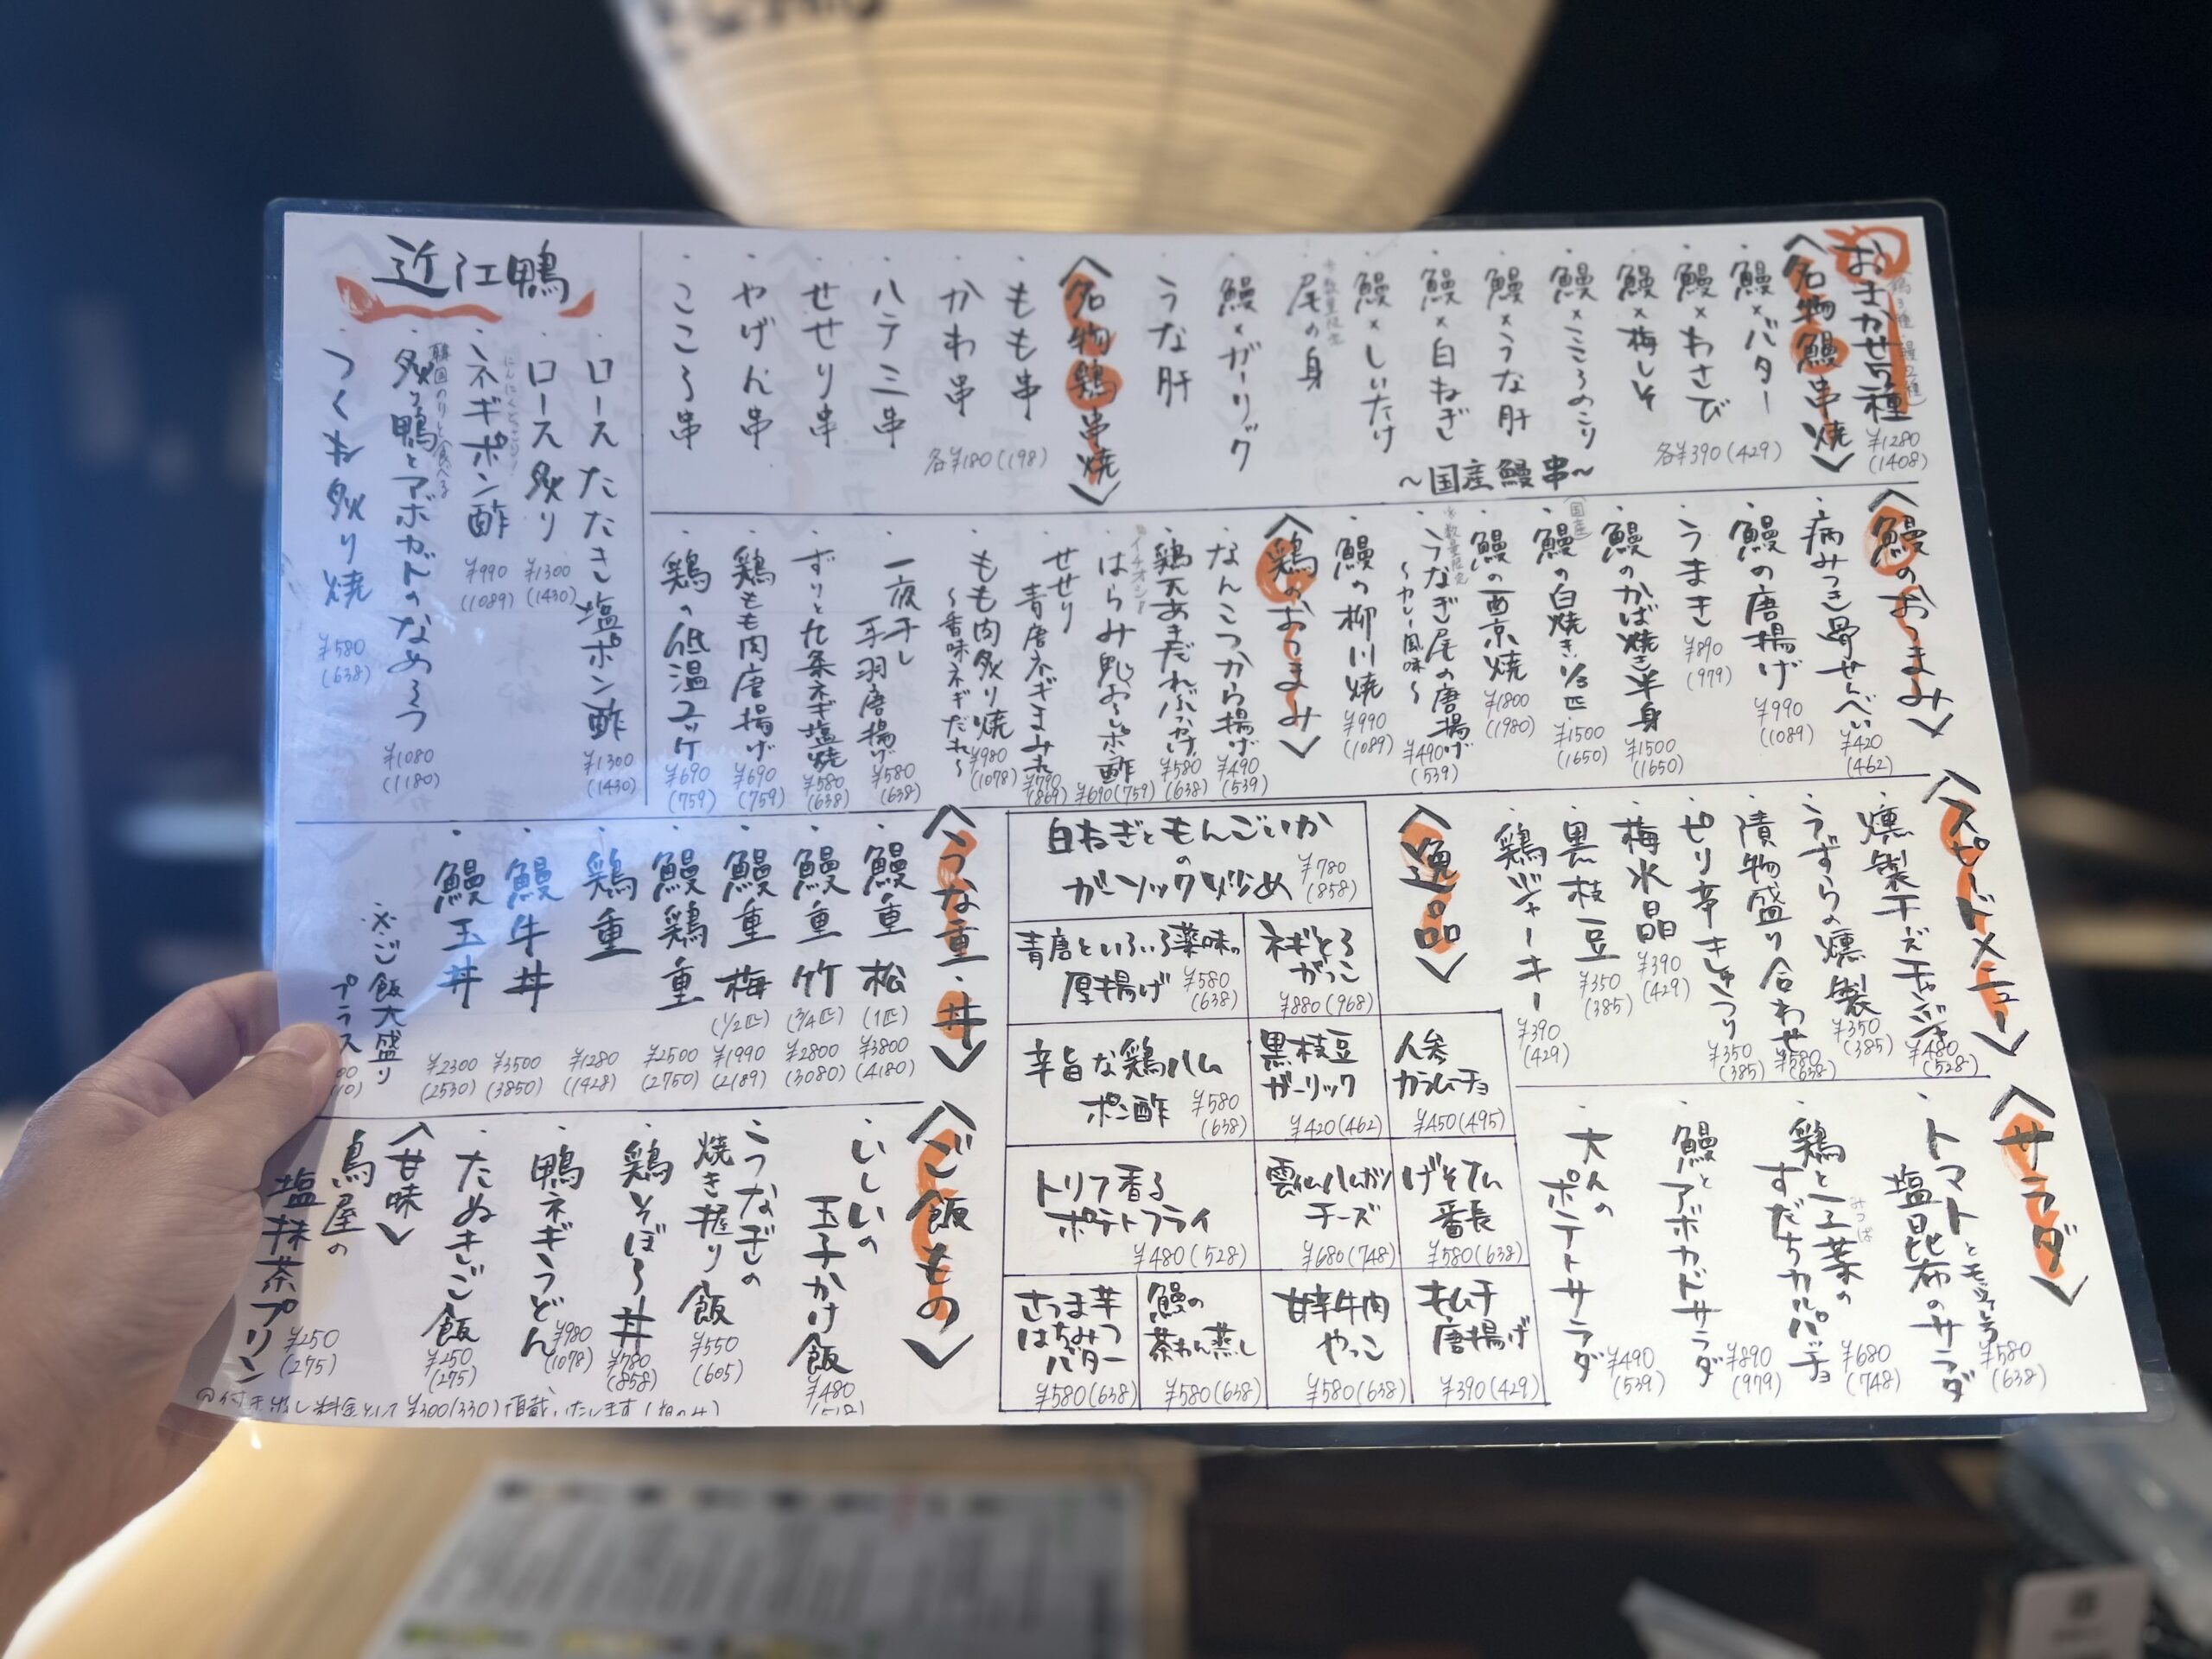 おまかせ5種
¥1280
(1408)
〈名物鰻串焼〉
・鰻×バター
・鰻×わさび
各¥390(429)
・鰻×梅しそ
・鰻×こころのこり
・鰻×うな肝
・鰻×白ねぎ
・鰻×しいたけ
〜国産鰻串〜
・尾の身
・鰻×ガーリック
・うな肝
〈名物鶏串焼〉
・もも串
各¥180(198)
・かわ串
・ハラミ串
・せせり串
・やげん串
・こころ串
〈鰻のおつまみ〉
・病みつき骨せんべい
¥420
(462)
・鰻の唐揚げ
¥990
(1089)
・うまき
¥890
(979)
・鰻のかば焼き半身
¥1500
(1650)
(国産)
・鰻の白焼き
¥1500
(1650)
・鰻の西京焼
¥1800
(1980)
※数量限定
・うなぎ尾の唐揚げ
〜カレー風味〜
¥490
(539)
・鰻の柳川焼
¥990
(1089)
〈鶏のおつまみ〉
・なんこつから揚げ
¥490
(539)
・鶏天あまだれぶっかけ
¥580
(638)
イチオシ!
・はらみ鬼おろしポン酢
¥690(759)
・せせり
青唐ネギまみれ
¥790
(869)
・もも肉炙り焼
〜香味ネギだれ〜
¥980
(1078)
・一夜干し
手羽唐揚げ
¥580
(638)
・ずりと九条ネギ塩焼
¥580
(638)
・鶏もも肉唐揚げ
¥690
(759)
・鶏の低温ユッケ
¥690
(759)
近江鴨
・ロースたたき塩ポン酢
¥1300
(1430)
・ロース炙り
¥1300
(1430)
・ネギポン酢
¥990
(1089)
韓国のりと食べる
・炙り鴨とアボカドのなめろう
¥1080
(1180)
・つくね炙り焼
¥580
(638)
〈スピードメニュー〉
・燻製チーズチャンジャ
¥480
(528)
・うずらの燻製
¥350
(385)
・漬物盛り合わせ
¥580
(638)
・ピリ辛きゅうり
¥350
(385)
・梅水晶
¥390
(429)
・黒枝豆
¥350
(385)
・鶏ジャーキー
¥390
(429)
〈逸品〉
白ねぎともんごいか
の
ガーリック炒め
¥780
(858)
ネギとろ
がっこ
¥880(968)
青唐といろいろ薬味の
厚揚げ
¥580
(638)
人参
カラムーチョ
¥450(495)
黒枝豆
ガーリック
¥420(462)
辛旨な鶏ハム
ポン酢
¥580
(638)
げそキム
番長
¥580(638)
雲仙ハムカツ
チーズ
¥680(748)
トリフ香る
ポテトフライ
¥480(528)
キムチ
唐揚げ
¥390(429)
甘辛牛肉
やっこ
¥580(638)
鰻の
茶わん蒸し
¥580(638)
さつま芋
はちみつ
バター
¥580(638)
〈うな重・丼〉
・鰻重 松
(1匹)
¥3800
(4180)
・鰻重 竹
(3/4匹)
¥2800
(3080)
・鰻重 梅
(1/2匹)
¥1990
(2189)
・鰻鶏重
¥2500
(2750)
・鶏重
¥1280
(1428)
・鰻牛丼
¥3500
(3850)
・鰻玉丼
¥2300
(2530)
※ご飯大盛り
プラス
〈サラダ〉
・トマトとモッツァレラ
塩昆布のサラダ
¥580
(638)
・鶏と三つ葉の
すだちカルパッチョ
¥680
(748)
・鰻とアボカドサラダ
¥890
(979)
・大人の
ポテトサラダ
¥490
(539)
〈ご飯もの〉
・いしいの
玉子かけ飯
¥480
・うなぎの
焼き握り飯
¥550
(605)
・鶏そぼろ丼
¥780
(858)
・鴨ネギうどん
¥980
(1078)
・たぬきご飯
¥250
(275)
〈甘味〉
鳥屋の
塩抹茶プリン
¥250
(275)
料金として¥300(330)頂戴いたします